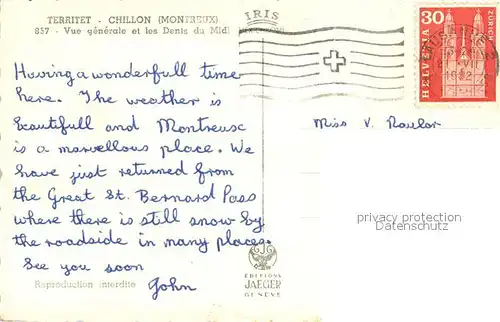 TERRITET - CHILLON (MONTREUX)
857 - Vue générale et les Dents du Midi
IRIS
Having a wonderfull time
here. The weather is
beautifull and Montreux
is a marvellous place. We
have just returned from
the Great St. Bernard Pass
where there is still snow by
the roadside in many places.
See you soon
John
Reproduction interdite
EDITIONS
JAEGER
GENÈVE
30
HELVETIA
ZÜRICH
LAUSANNE
VII
Miss V. Raulor
privacy protection
Datenschutz